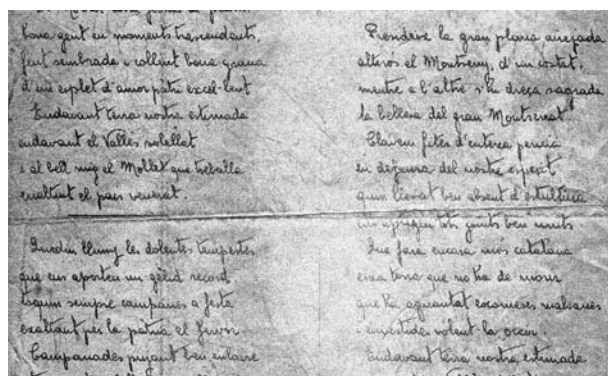 bona gent en moments trascendents,
fent sembrada i collint bona grana
d'un esplet d'amor patri excel·lent
Endavant terra nostra estimada
endavant el Vallès solellat
i al bell mig el Mollet que treballa
enaltint el país venerat.
Quedin lluny les dolentes tempestes
que ens aporten un gèlid record
toquin sempre campanes a festa
exaltant per la patria el fervor.
Campanades pujant ben enlaire
Presideix la gran plana
alterós el Montseny, d'un costat,
mentre a l'altre s'hi dreça sagrada
la bellesa del gran Montserrat.
Clavem fites d'enteresa
en defensa del nostre esperit
llevat ben absent
tots junts ben units
Que farà encara més catalana
eixa terra que no ha de morir
que ha aguantat escomeses malsanes
i envestides volent-la occir.
Endavant terra nostra estimada